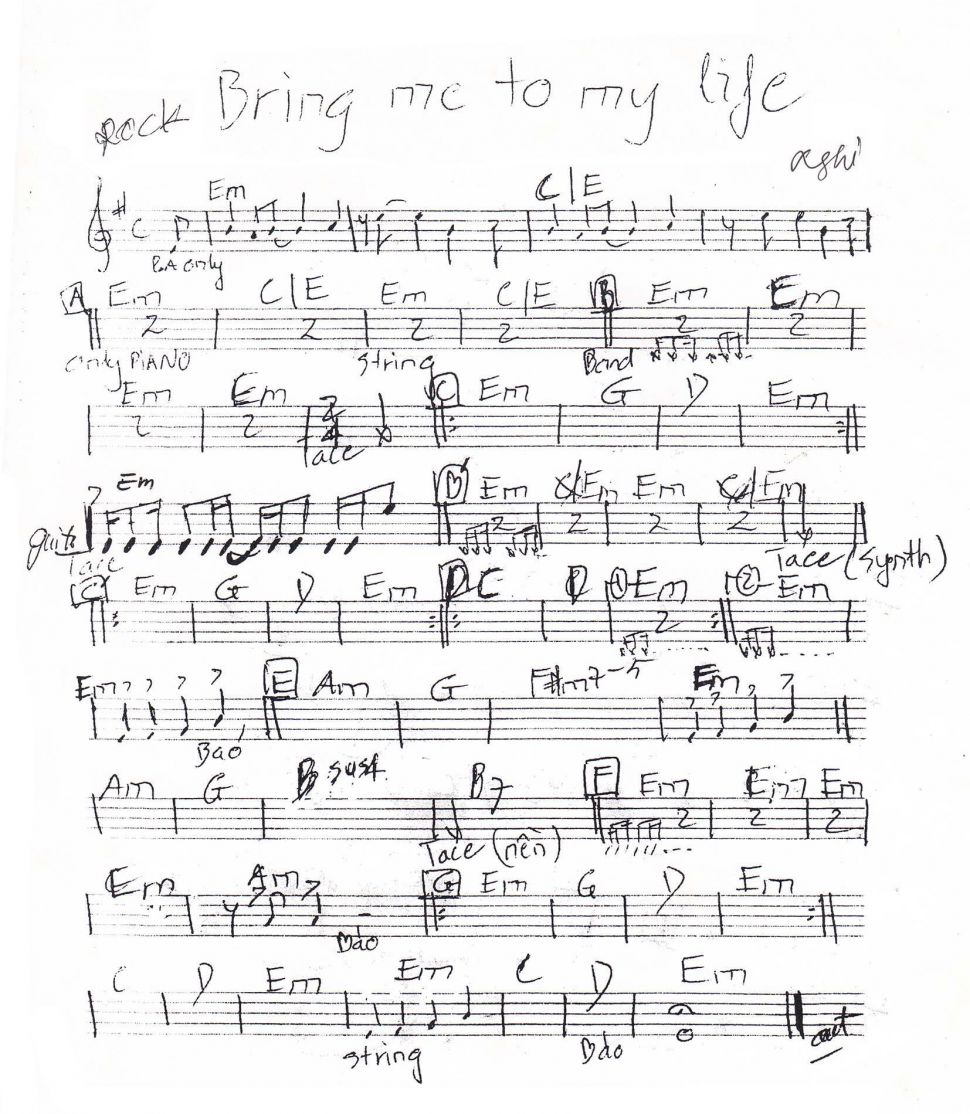 Bring me to my life
Rock
Em C|E
BA only
A Em C|E Em C|E B Em Em
2 2 2 2 2 2
Only PIANO String Band
Em Em C Em G D Em
2 2
Tace
Em B Em C/Em Em C/Em
2 2 2 2
Tace Tace (Synth)
C Em G D Em D C D 1 Em 2 Em
2
Em E Am G F#m7-5 Em
Báo
Am G B sus4 B7 F Em Em Em
2 2 2
Tace (nền)
Em Am G Em G D Em
Báo
C D Em Em C D Em
String Báo